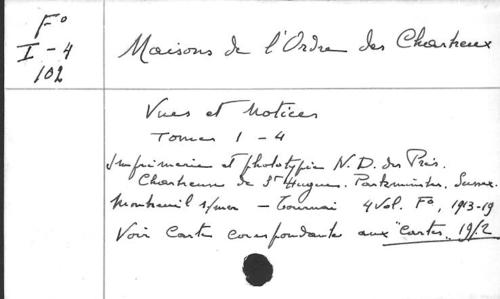 F°
I - 4
102
Maisons de l'Ordre des Chartreux
Vues et Notices
Tomes 1 - 4
Imprimerie et phototypie N. D. des Prés.
Chartreuse de St Hugues. Parkminster. Sussex.
Montreuil s/mer - Tournai 4 Vol. F°, 1913-19
Voir Carte correspondante aux "Cartes" 19/2